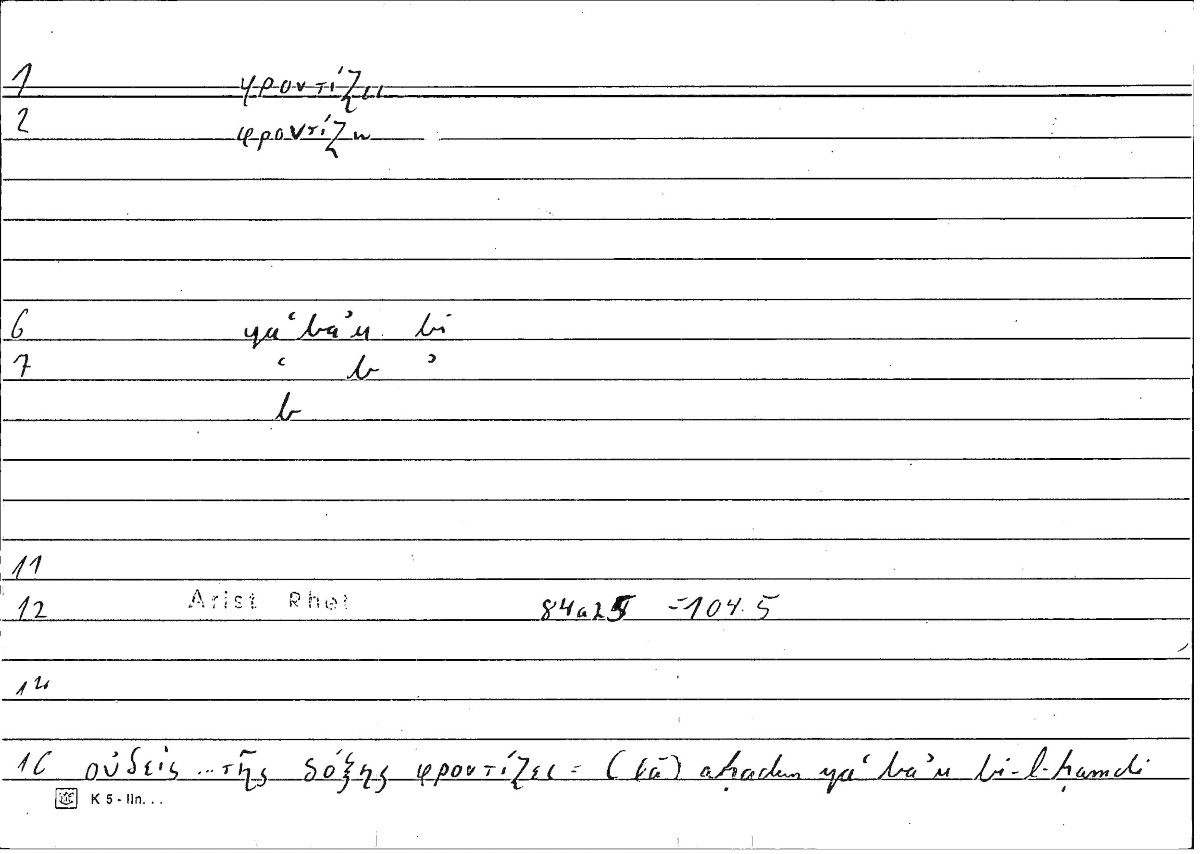 1 φροντίζει
2 φροντίζω
6 yaʿbaʾu bi
7 ʿ b ʾ
b
11
12 Arist Rhet 84a25 =104.5
14
16 οὐδεὶς ... τῆς δόξης φροντίζει = (lā) aḥadun yaʿbaʾu bi-l-ḥamdi
K 5 - lin. . .